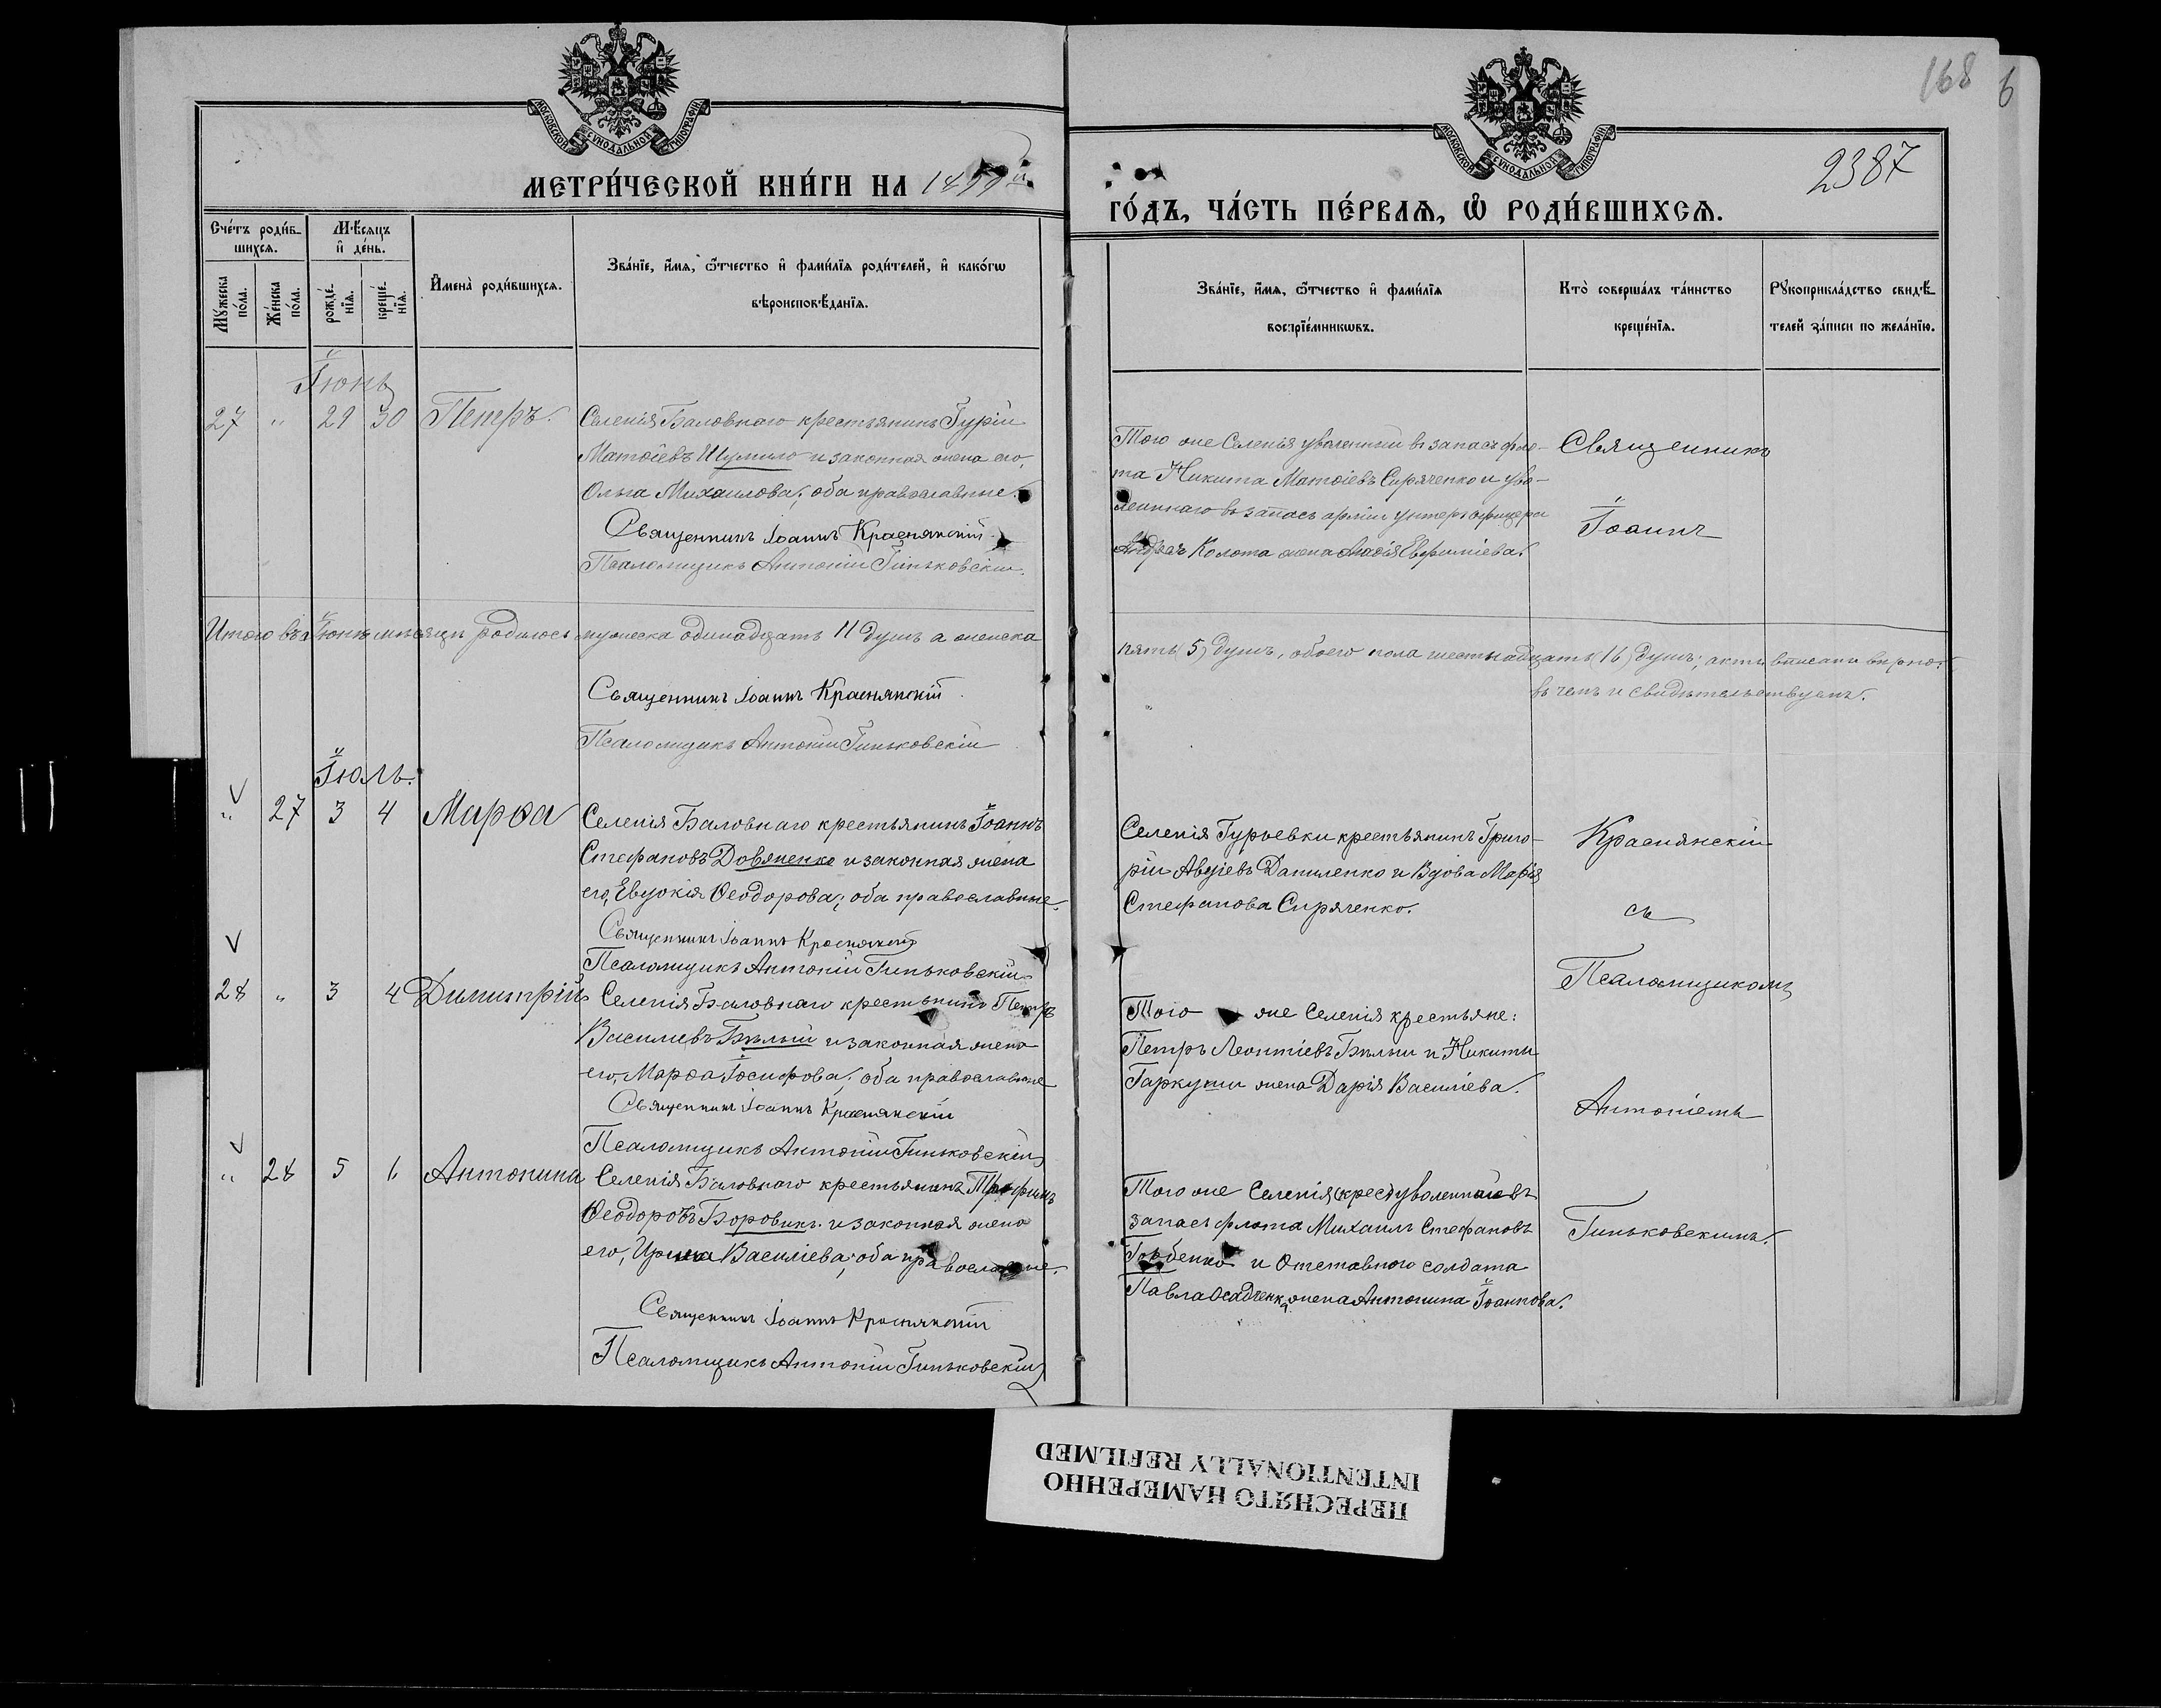 168
6
2387
МОСКОВСКОЙ СУНОДАЛЬНОЙ ТИПОГРАФІИ
МОСКОВСКОЙ СУНОДАЛЬНОЙ ТИПОГРАФІИ
МЕТРИ́ЧЕСКОЙ КНИ́ГИ НА 1899й
ГО́ДЪ, ЧА́СТЬ ПЕ́РВАЯ, Ѡ РОДИ́ВШИХСЯ.
Сче́тъ роди́в-
шихся.
Мꙋ́жеска по́ла.
Же́нска по́ла.
Мѣ́сяцъ
и҆ де́нь.
рожде́-
нїя.
креще́-
нїя.
И҆мена̀ роди́вшихся.
Зва́нїе, и҆́мя, ѻ҆́тчество и҆ фами́лїя роди́телей, и҆ како́гѡ
вѣроисповѣ́данїя.
Зва́нїе, и҆́мя, ѻ҆́тчество и҆ фами́лїя
воспрїе́мникѡвъ.
Кто̀ соверша́лъ та́инство
креще́нїя.
Рꙋкоприкла́дство свидѣ́-
телей за́писи по жела́нїю.
Іюнь
27 " 29 30 Петръ.
Селенія Баловнаго крестьянинъ Гурій
Матѳіевъ Шумило и законная жена его,
Ольга Михаилова; оба православные.
Священникъ Іоаннъ Краснянскій
Псаломщикъ Антоній Гиньковскій.
Того же Селенія уволенный въ запасъ фло-
та Никита Матѳіевъ Сиряченко и уво-
леннаго въ запасъ арміи унтеръ офицера
Андрея Колота жена Евфиміева.
Священникъ
Іоаннъ
Итого въ Іюнѣ мѣсяцѣ родилось мужеска одинадцать 11 душъ а женска
пять (5) душъ, обоего пола шестнадцать (16) душъ; акты вписаны вѣрно:
въ чемъ и свидѣтельствуемъ.
Священникъ Іоаннъ Краснянскій
Псаломщикъ Антоній Гиньковскій
Іюль.
" 27 3 4 Марѳа
Селенія Баловнаго крестьянинъ Іоаннъ
Стефановъ Довженко и законная жена
его, Евдокія Ѳеодорова; оба православные.
Священникъ Іоаннъ Краснянскій
Псаломщикъ Антоній Гиньковскій
Селенія Гурьевки крестьянинъ Григо-
рій Авдіевъ Даниленко и Вдова Марія
Стефанова Сиряченко.
Краснянскій
съ
Псаломщикомъ
28 " 3 4 Димитрій
Селенія Баловнаго крестьянинъ Петръ
Василіевъ Бѣлый и законная жена
его, Марѳа Іосифова; оба православные
Священникъ Іоаннъ Краснянскій
Псаломщикъ Антоній Гиньковскій
Того же Селенія крестьяне:
Петръ Леонтіевъ Бѣлый и Никиты
Гаркуши жена Дарія Василіева.
Антоніемъ
" 28 5 6 Антонина
Селенія Баловнаго крестьянинъ Трофимъ
Ѳеодоровъ Боровикъ и законная жена
его, Ирина Василіева; оба православные.
Священникъ Іоаннъ Краснянскій
Псаломщикъ Антоній Гиньковскій
Того же Селенія (крест) уволенный въ
запасъ флота Михаилъ Стефановъ
Горбенко и Отставного солдата
Павла Осадченка жена Антонина Іоаннова.
Гиньковскимъ.
ПЕРЕСНЯТО НАМЕРЕННО
INTENTIONALLY REFILMED